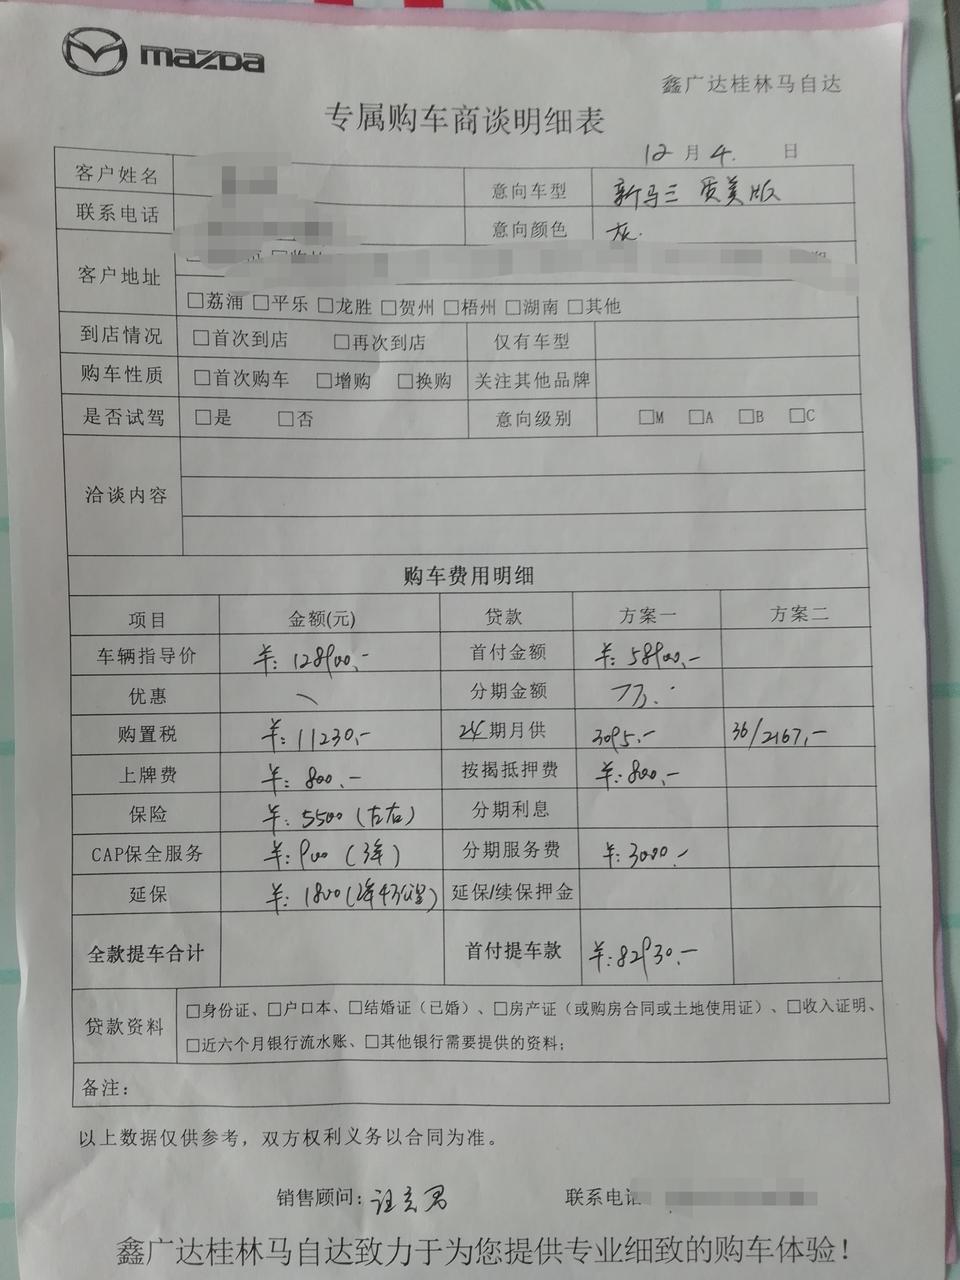 mazda
鑫广达桂林马自达
专属购车商谈明细表
12月4.日
客户姓名 意向车型 新马三 质美版
联系电话 意向颜色 灰.
客户地址
□荔浦 □平乐 □龙胜 □贺州 □梧州 □湖南 □其他
到店情况 □首次到店 □再次到店 仅有车型
购车性质 □首次购车 □增购 □换购 关注其他品牌
是否试驾 □是 □否 意向级别 □M □A □B □C
洽谈内容
购车费用明细
项目 金额(元) 贷款 方案一 方案二
车辆指导价 羊:128900.- 首付金额 羊:58900.-
优惠 \ 分期金额 7万.
购置税 羊:11230.- 24期月供 3095.- 36/2167.-
上牌费 羊:800.- 按揭抵押费 羊:800.-
保险 羊:5500(左右) 分期利息
CAP保全服务 羊:900(3年) 分期服务费 羊:3000.-
延保 羊:1800(2年4万公里) 延保/续保押金
全款提车合计 首付提车款 羊:82930.-
贷款资料 □身份证、□户口本、□结婚证（已婚）、□房产证（或购房合同或土地使用证）、□收入证明、
□近六个月银行流水账、□其他银行需要提供的资料;
备注:
以上数据仅供参考，双方权利义务以合同为准。
销售顾问: 联系电话
鑫广达桂林马自达致力于为您提供专业细致的购车体验!